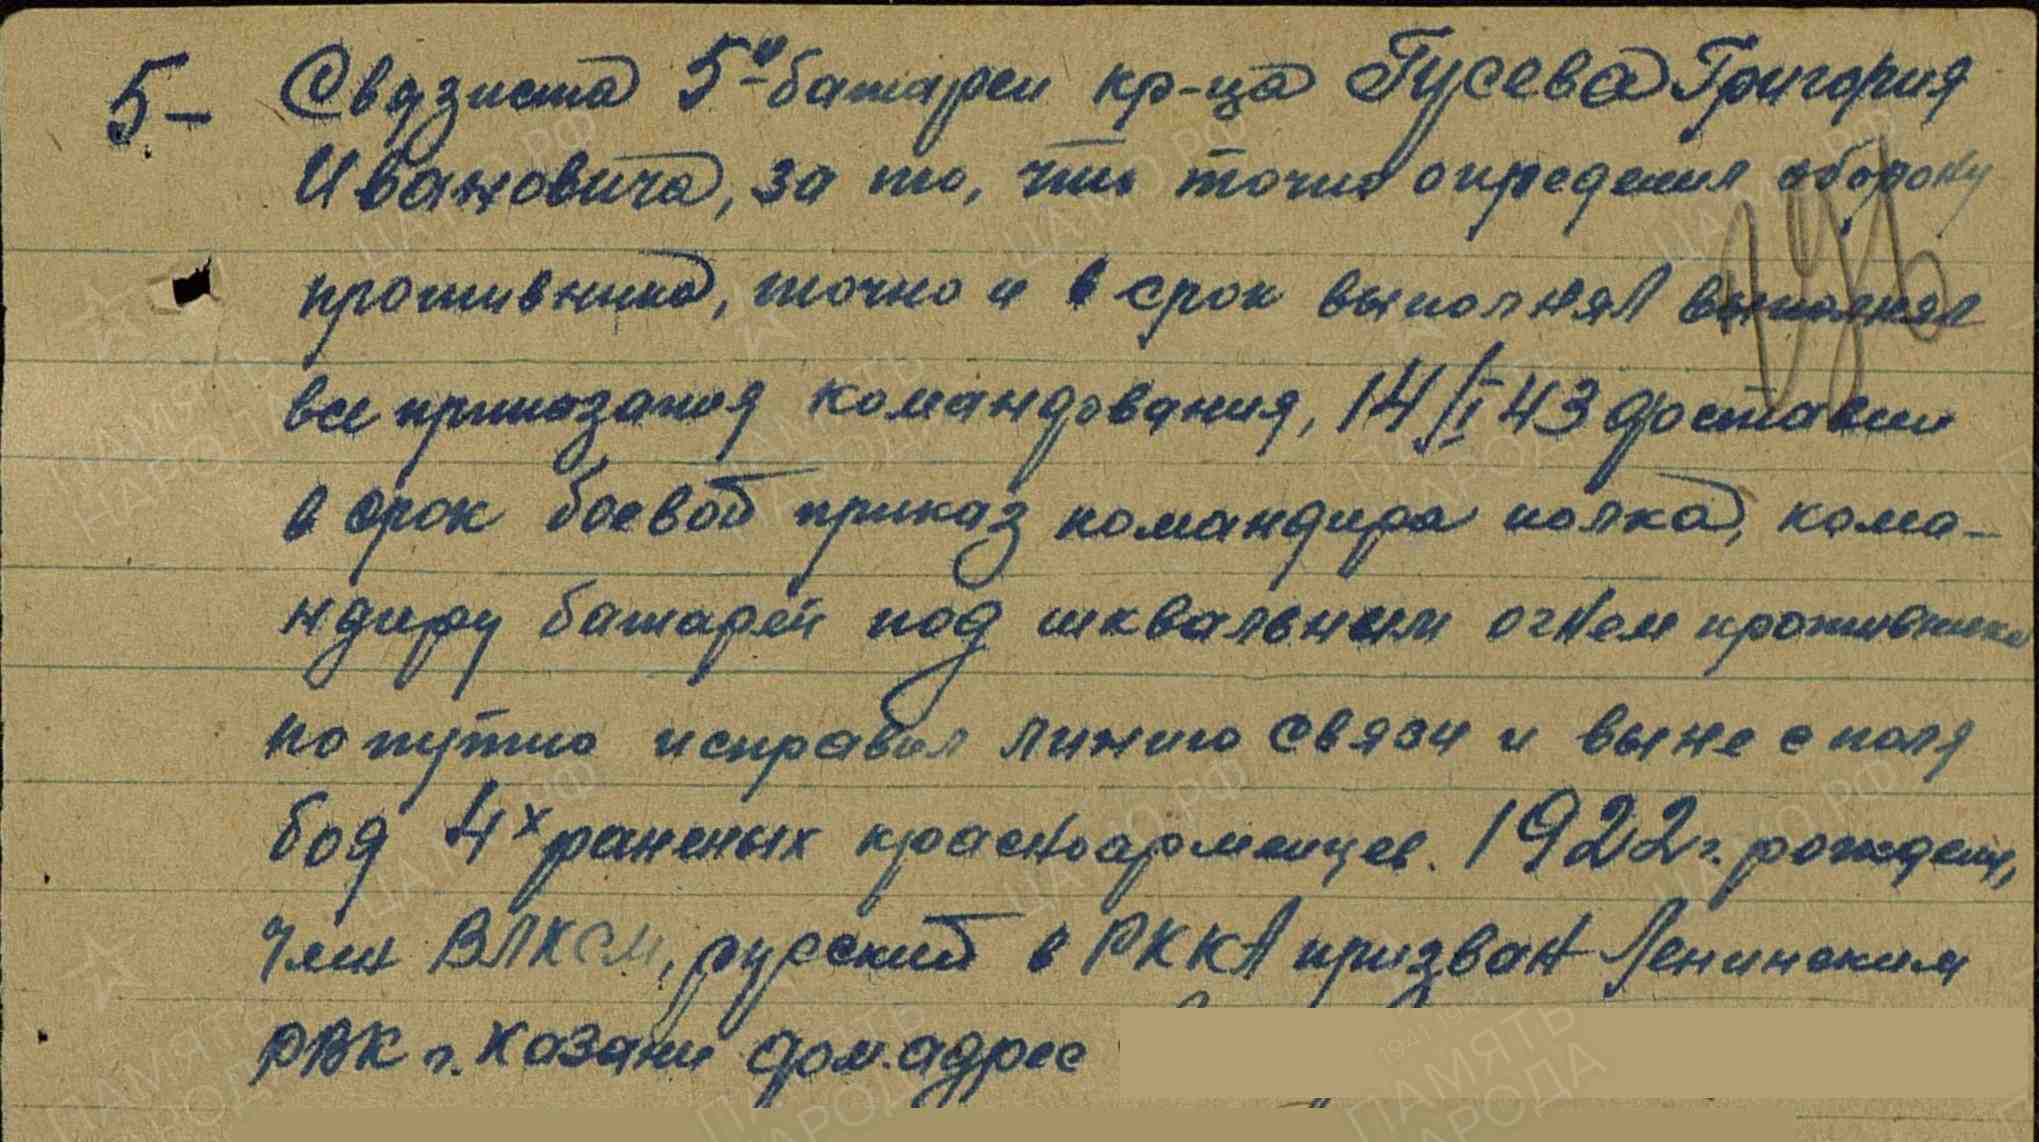 5- Связиста 5й батареи кр-ца Гусева Григория
Ивановича, за то, что точно определил оборону
противника, точно и в срок выполнял выполнял
все приказания командования, 14/I 43 доставил
в срок боевой приказ командира полка, кома-
ндиру батареи под шквальным огнем противника
попутно исправил линию связи и вынес с поля
боя 4х раненых красноармейцев. 1922 г. рождения,
член ВЛКСМ, русский в РККА призван Ленинским
РВК г. Казани дом. адрес